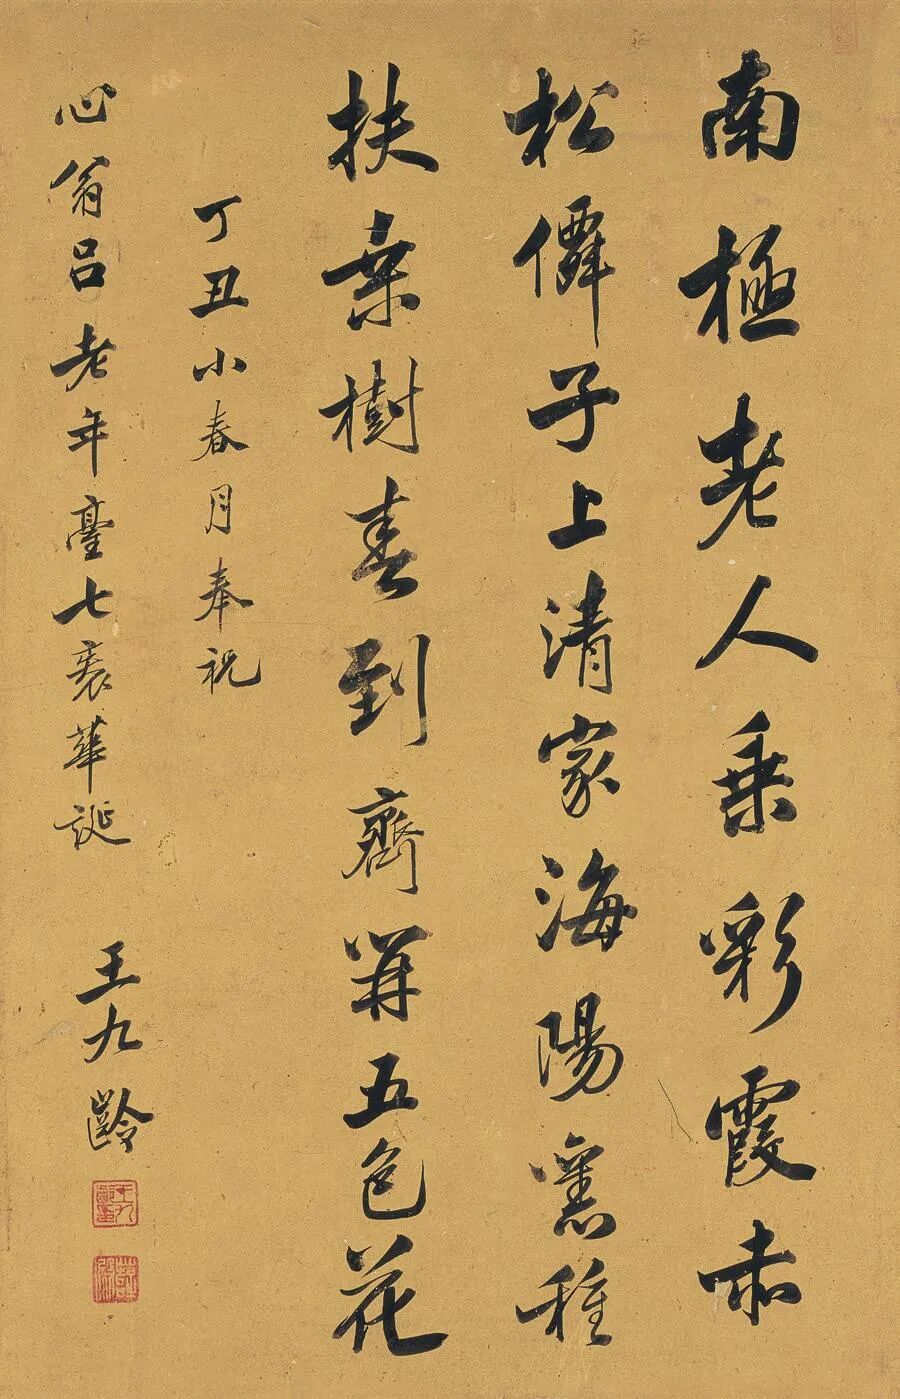 南極老人乘彩霞赤
松僊子上清家海陽舊種
扶桒樹春到齊開五色花
丁丑小春月奉祝
心翁呂老年臺七袠華誕 王九齡